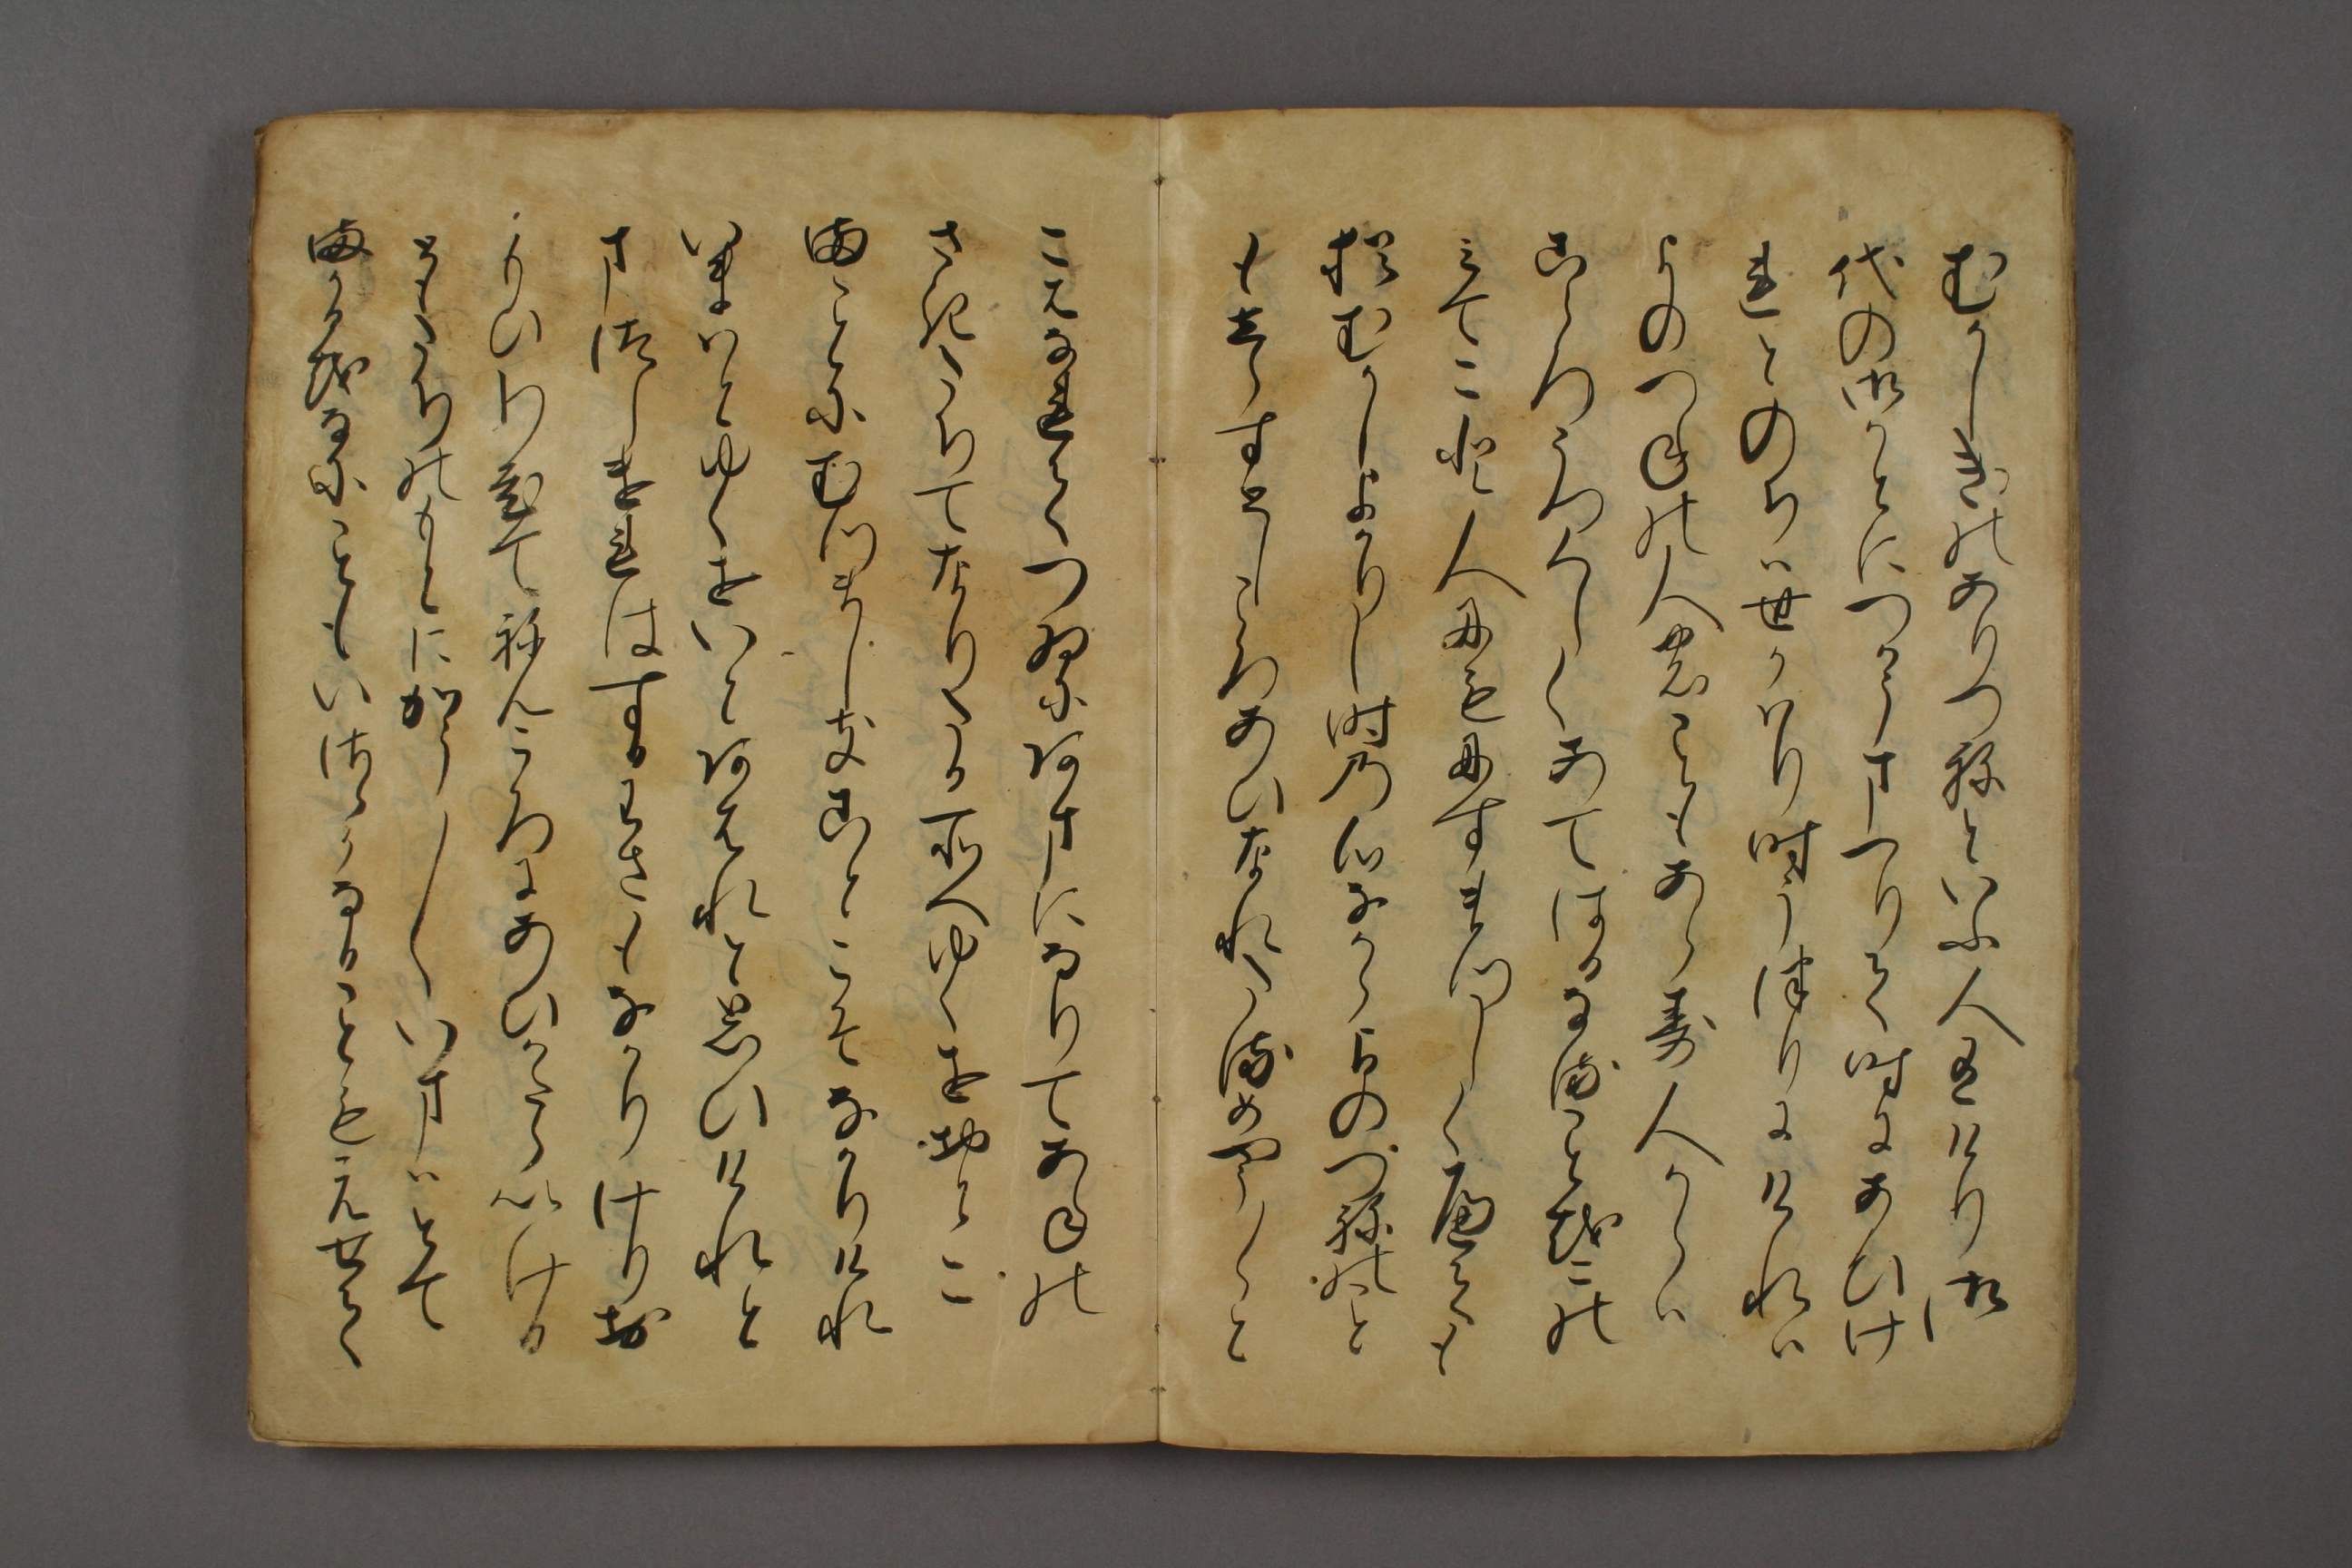 むかしきのありつねといふ人有けり御
代の御かとにつかうまつりて時にあひけ
れとのちは世かはり時うつりにけれは
よのつねの人のこともあらす人からは
心うつくしくあてはかなることをこの
みてこと人にもにすまつしくへても
猶むかしよかりし時の心なからよのつねのこと
もしらすとしころあひなれたるめやう〳〵と
こはなれてつゐにあまになりてあねの
さきたちてなりたる所へゆくをおとこ
まことにむつましきことこそなかりけれ
いまはとゆくをいとあはれと思ひけれと
まつしけれはするわさもなかりけりお
もひわひてねんころにあひかたらひける
ともたちのもとにかう〳〵いまはとて
まかるをなにこともいさゝかなることもえせて